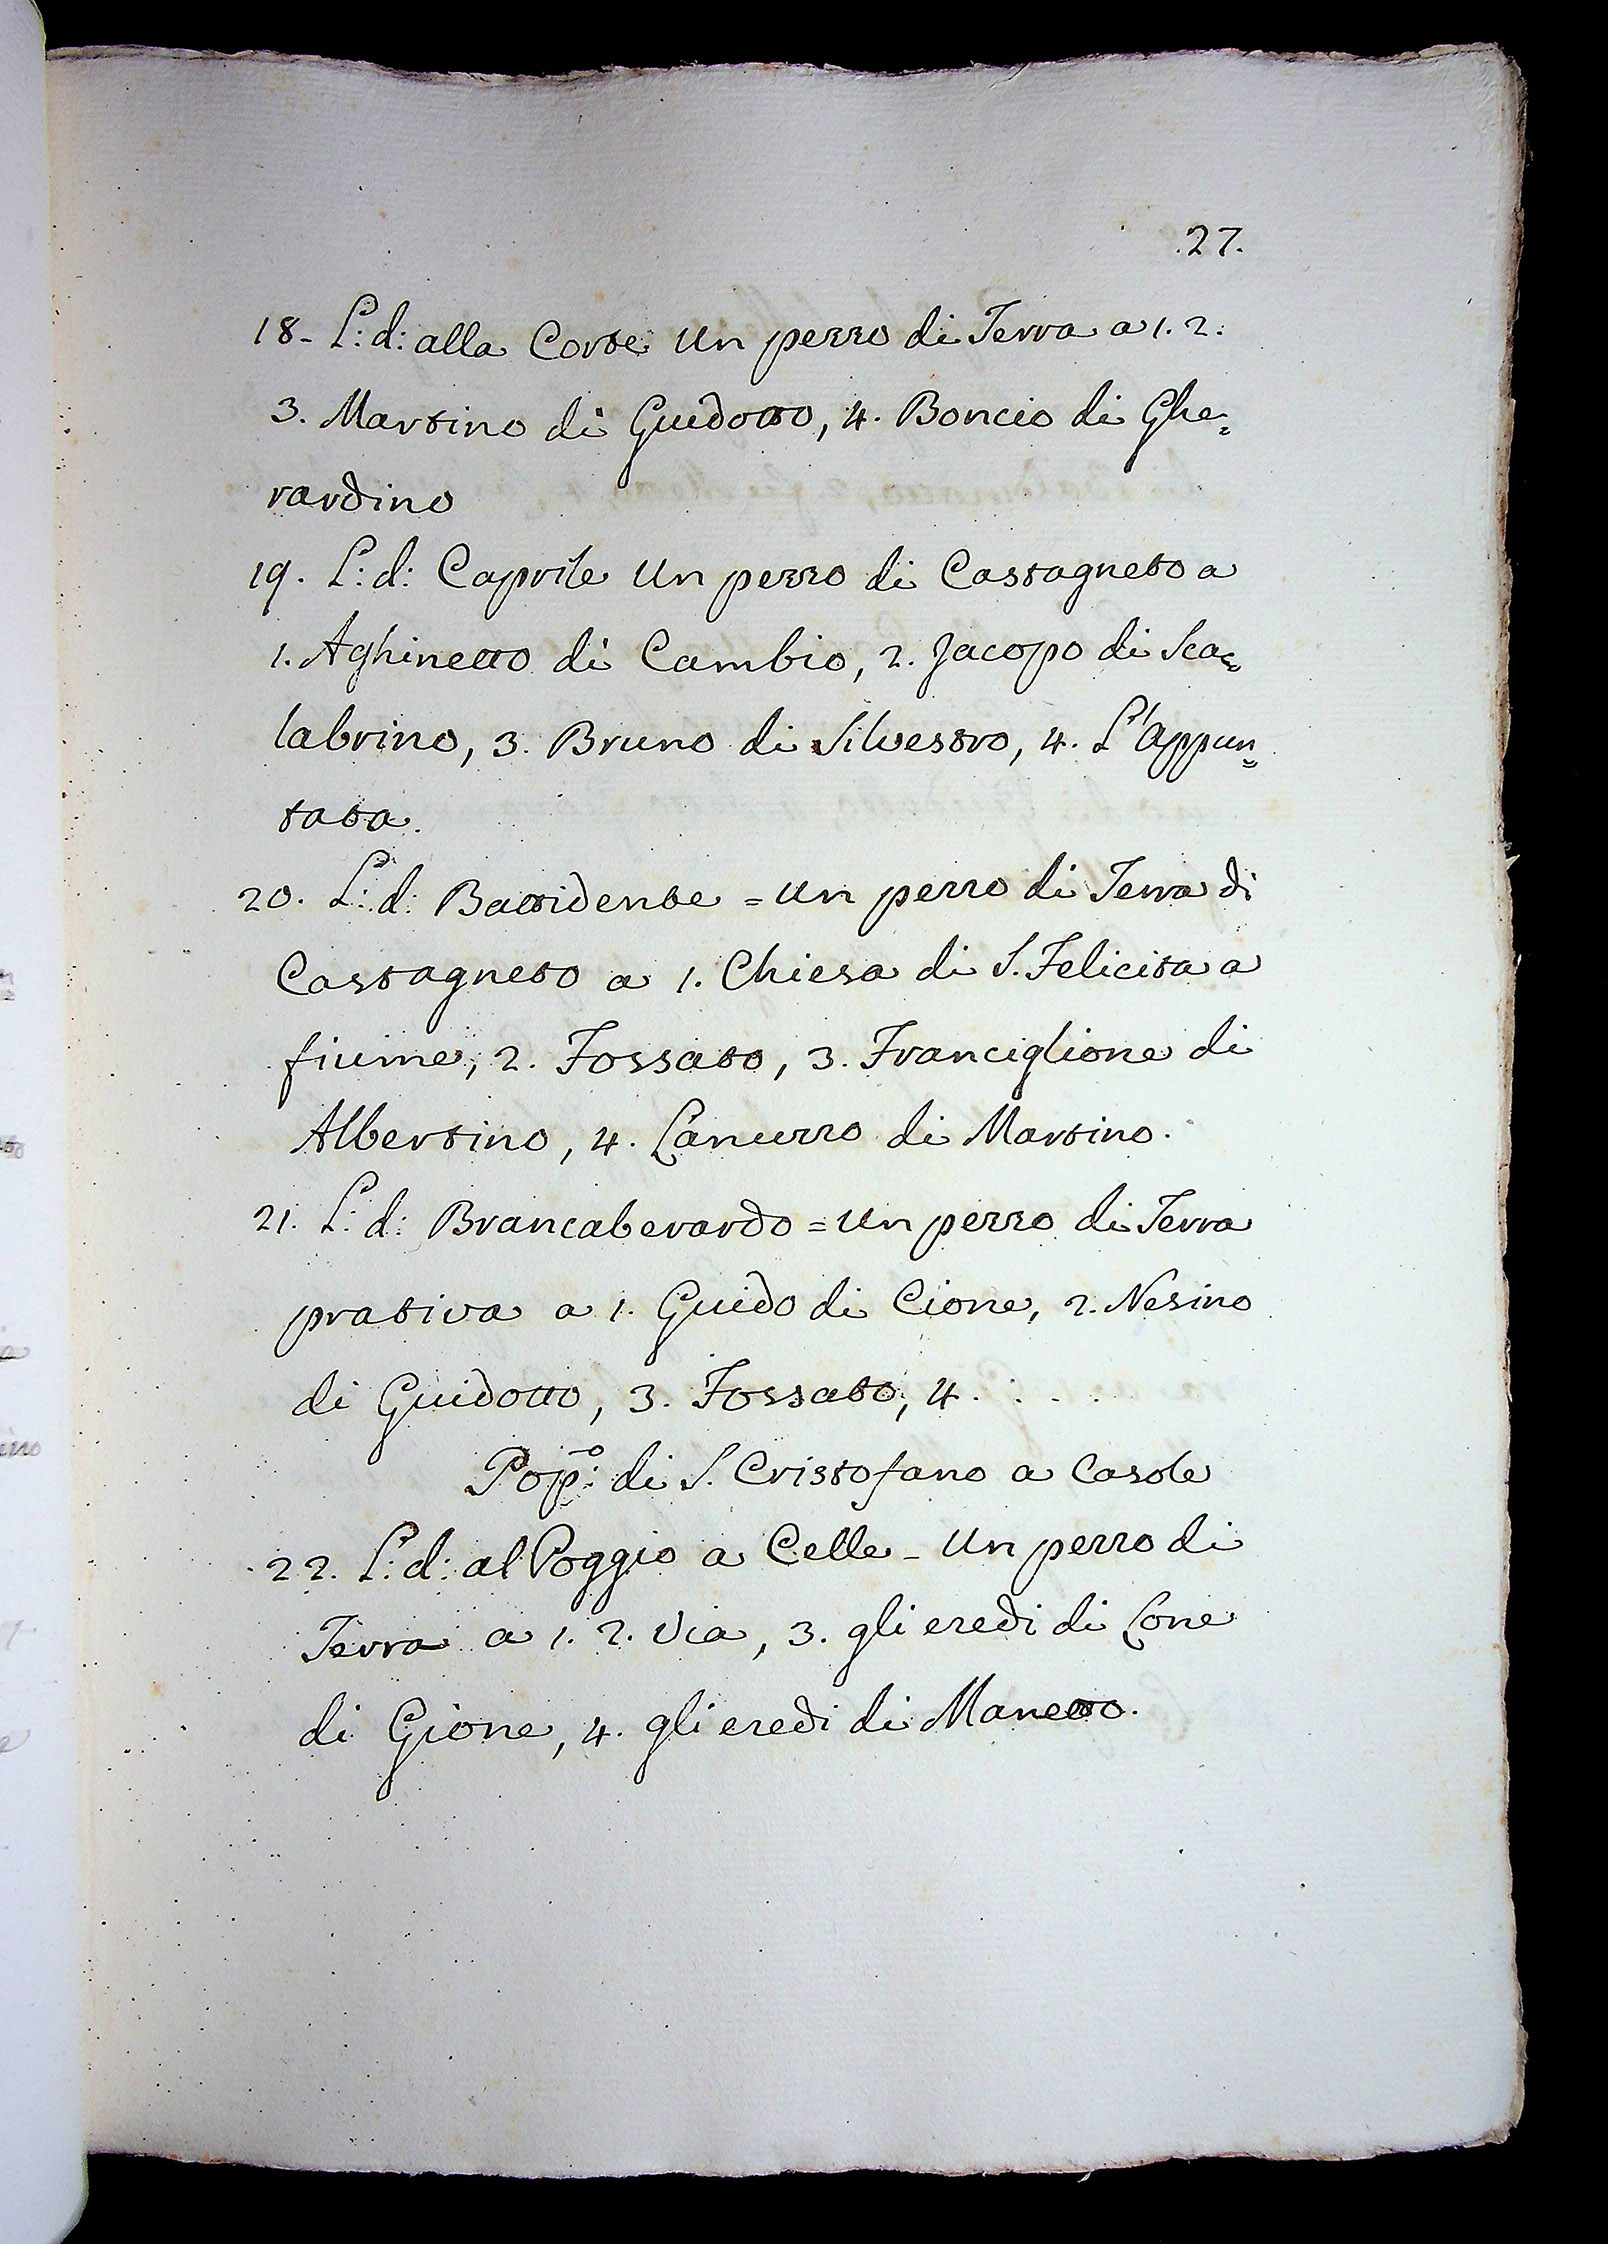 .27.
18- L: d: alla Corte Un pezzo di Terra a 1. 2.
3. Martino di Guidotto, 4. Boncio di Ghe=
rardino
19. L: d: Caprile Un pezzo di Castagneto a
1. Aghinetto di Cambio, 2. Jacopo di Sca=
labrino, 3. Bruno di Silvestro, 4. L'Appun=
tata.
20. L: d: Battidente = Un pezzo di Terra di
Castagneto a 1. Chiesa di S. Felicita a
fiume, 2. Fossato, 3. Franciglione di
Albertino, 4. Canuzzo di Martino.
21. L: d: Brancaberardo = Un pezzo di Terra
prativa a 1. Guido di Cione, 2. Nesino
di Guidotto, 3. Fossato, 4. . . . .
Pop:o di S. Cristofano a Casole
22. L: d: al Poggio a Celle - Un pezzo di
Terra a 1. 2. Via, 3. gli eredi di Cone
di Gione, 4. gli eredi di Manetto.